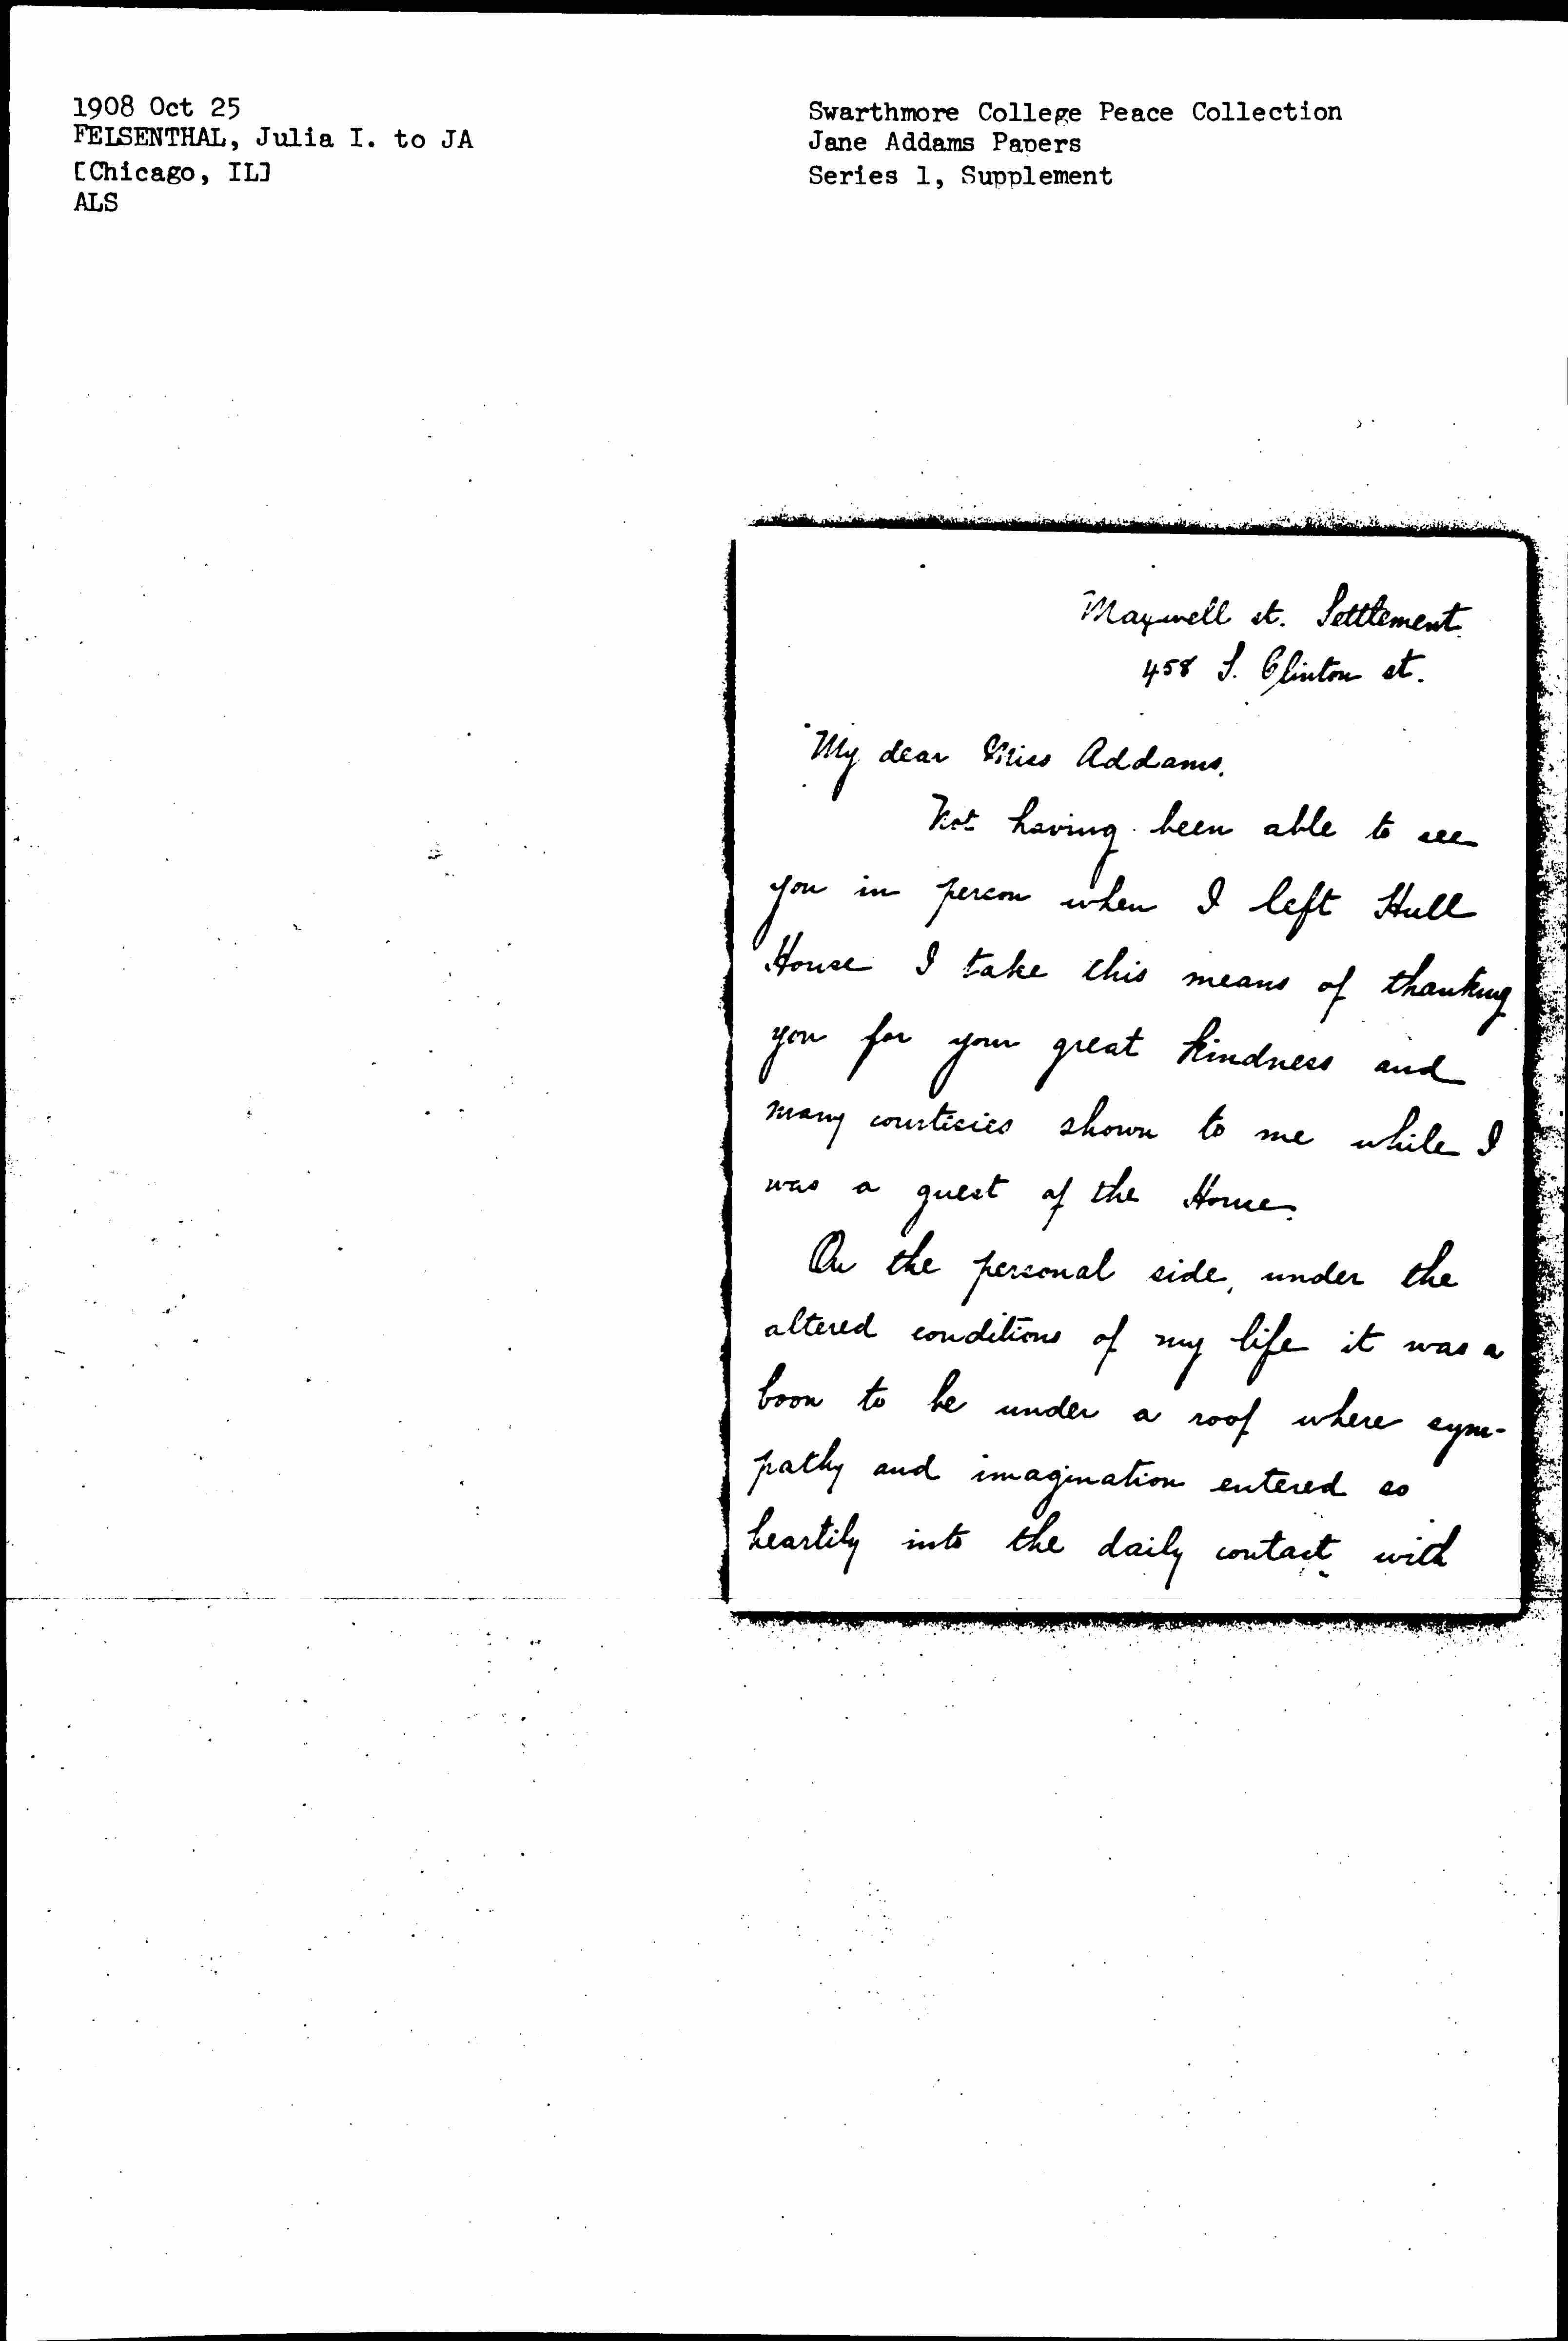 1908 Oct 25
FELSENTHAL, Julia I. to JA
[Chicago, IL]
ALS
Swarthmore College Peace Collection
Jane Addams Papers
Series 1, Supplement
Maxwell st. Settlement
458 S. Clinton st.
My dear Miss Addams,
Not having been able to see
you in person when I left Hull
House I take this means of thanking
you for your great kindness and
many courticies shown to me while I
was a guest of the House.
On the personal side, under the
altered conditions of my life it was a
boon to be under a roof where sym-
pathy and imagination entered so
heartily into the daily contact with